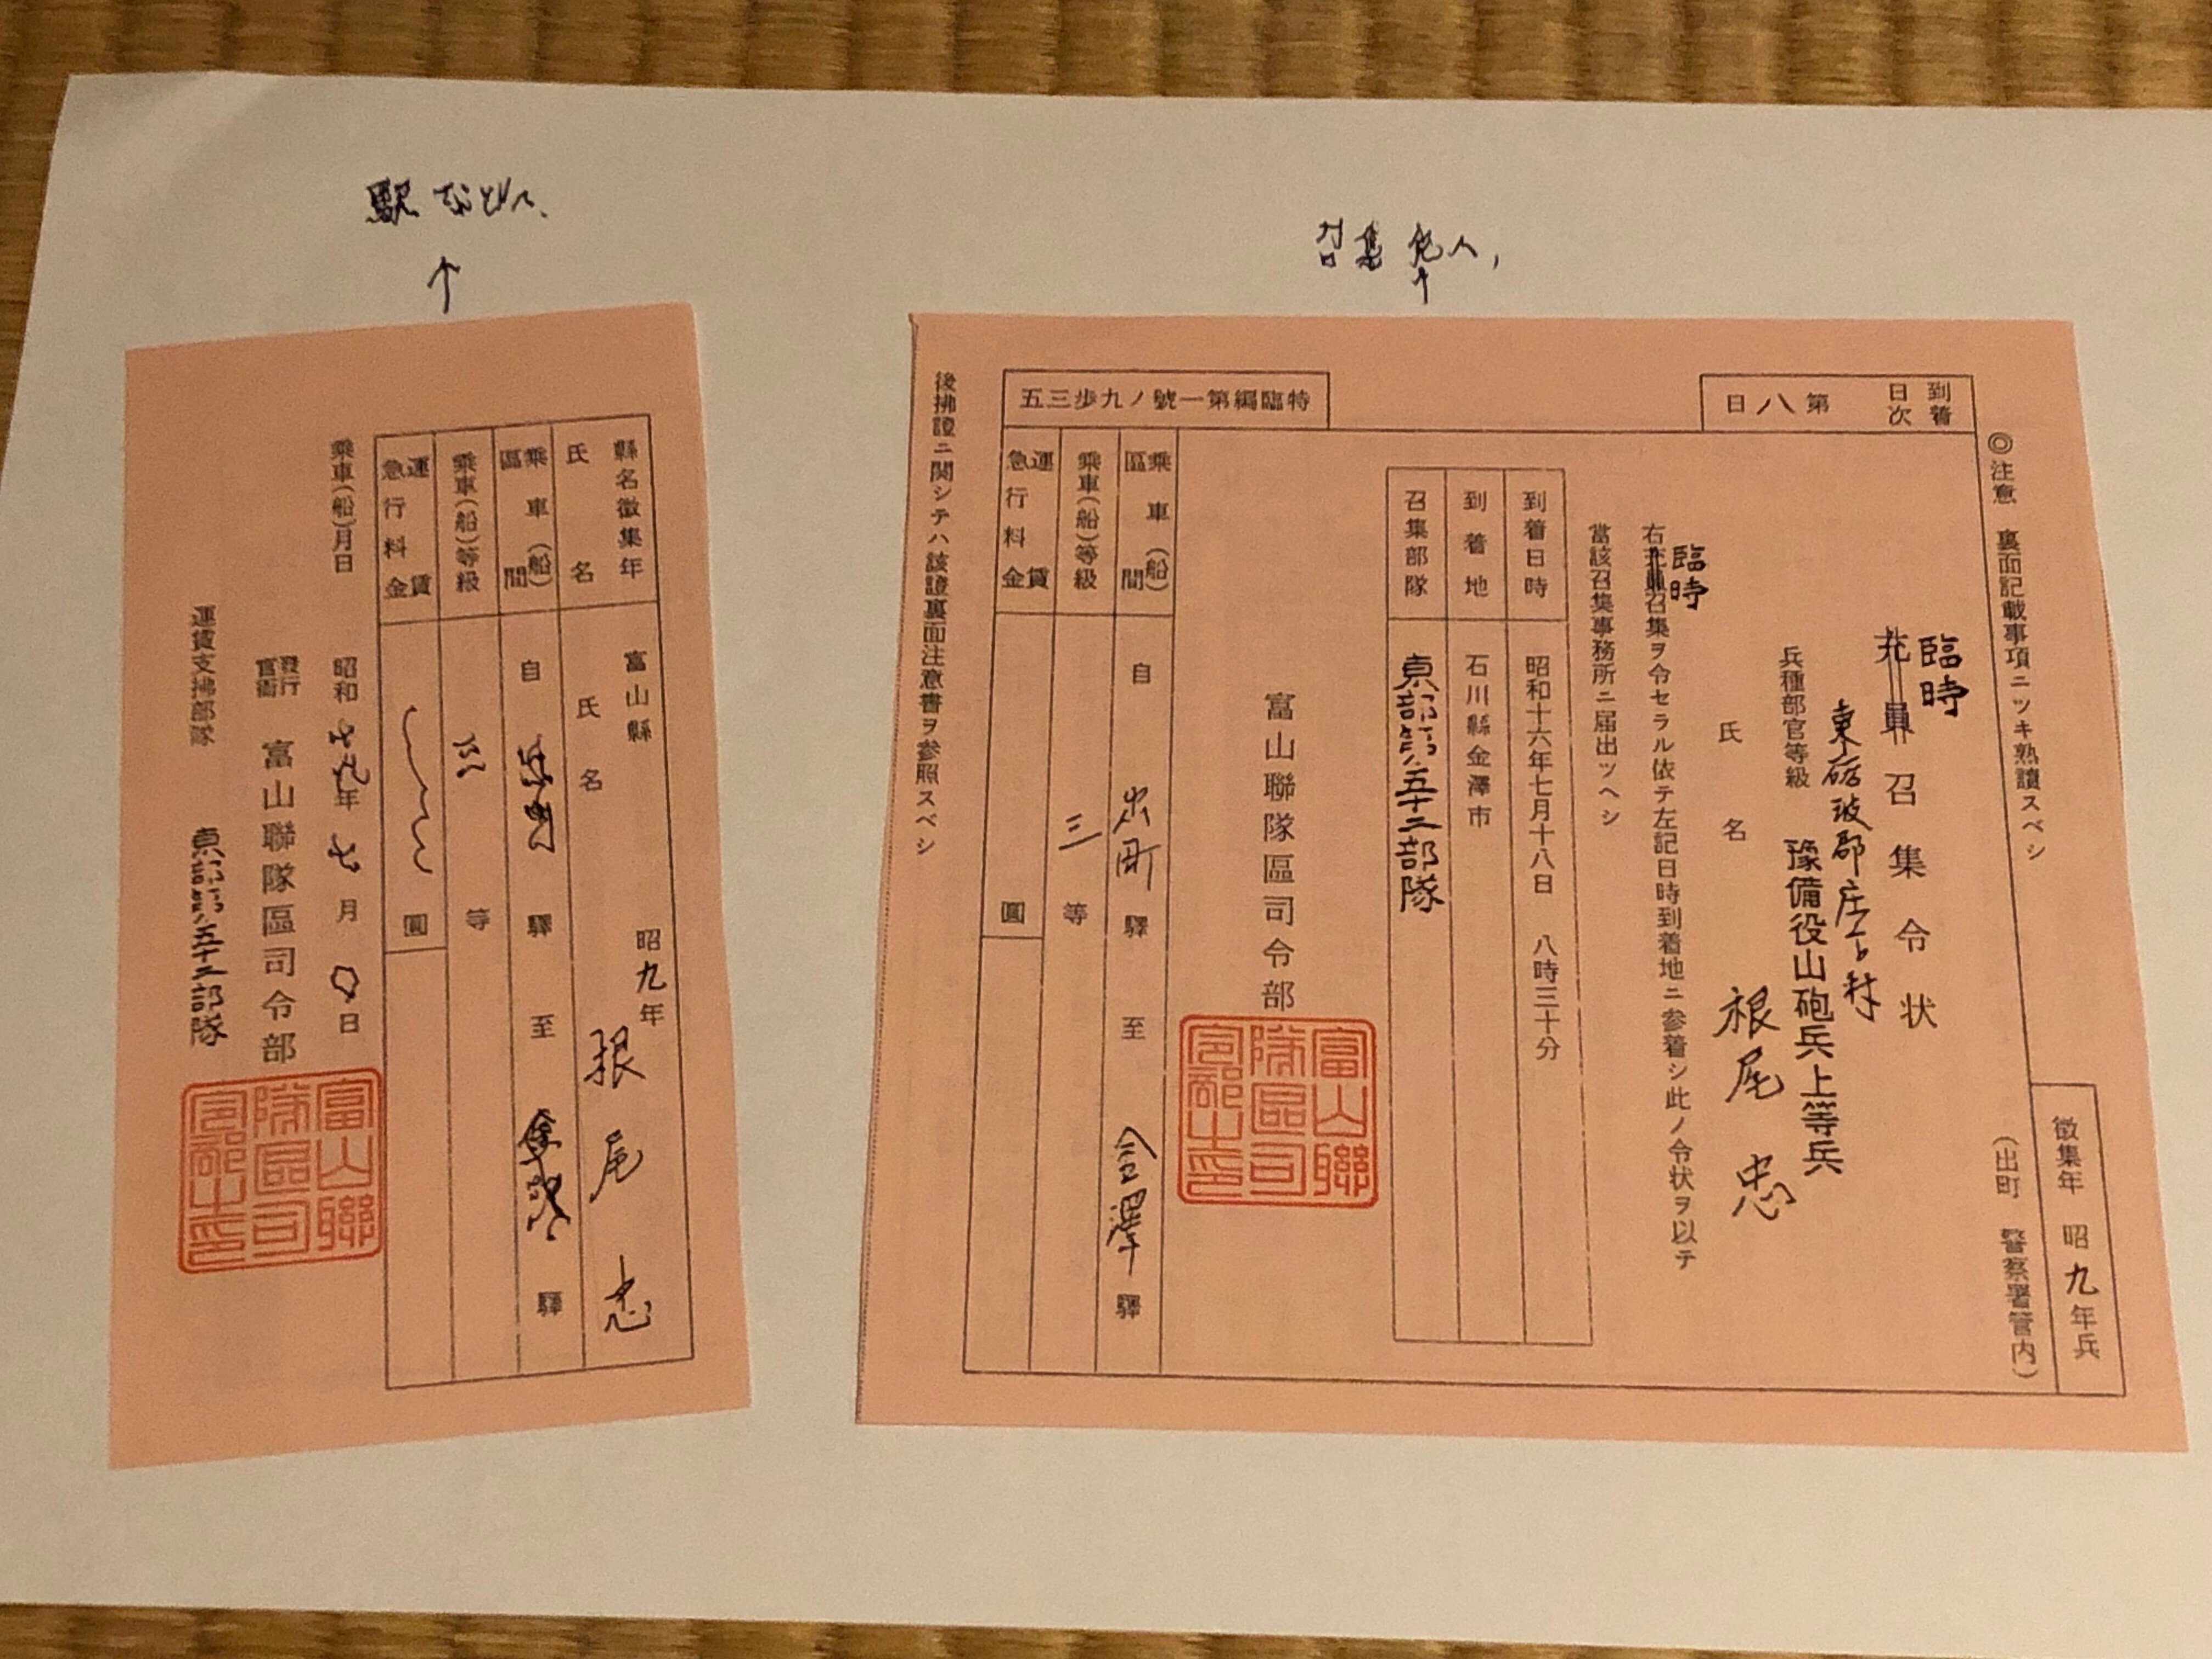 召集
◎注意 裏面記載事項ニツキ熟讀スベシ
(出町 警察署管内)
徴集年 昭九年兵
到着日次 第八日
臨時
充員召集令状
東礪波郡庄下村
兵種部官等級 豫備役山砲兵上等兵
氏名 根尾 忠
臨時
右充員召集ヲ令セラル依テ左記日時到着地ニ参着シ此ノ令状ヲ以テ
當該召集事務所ニ届出ツヘシ
到着日時 昭和十六年七月十八日 八時三十分
到着地 石川縣金澤市
召集部隊 東部第五十二部隊
富山聯隊區司令部
富山聯隊區司令部之印
特臨編第一號ノ九歩三五
乘車(船)區間 自 出町 驛 至 金澤 驛
乘車(船)等級 三等
運賃 急行料金 圓
後拂證ニ関シテハ該證裏面注意書ヲ参照スベシ
駅
縣名徴集年 富山縣 昭九年
氏名 氏名 根尾 忠
乘車(船)區間 自 驛 至 驛
乘車(船)等級 三等
運賃 急行料金 圓
乘車(船)月日 昭和 年 七月 日
發行官衙 富山聯隊區司令部
運賃支拂部隊 東部第五十二部隊
富山聯隊區司令部之印